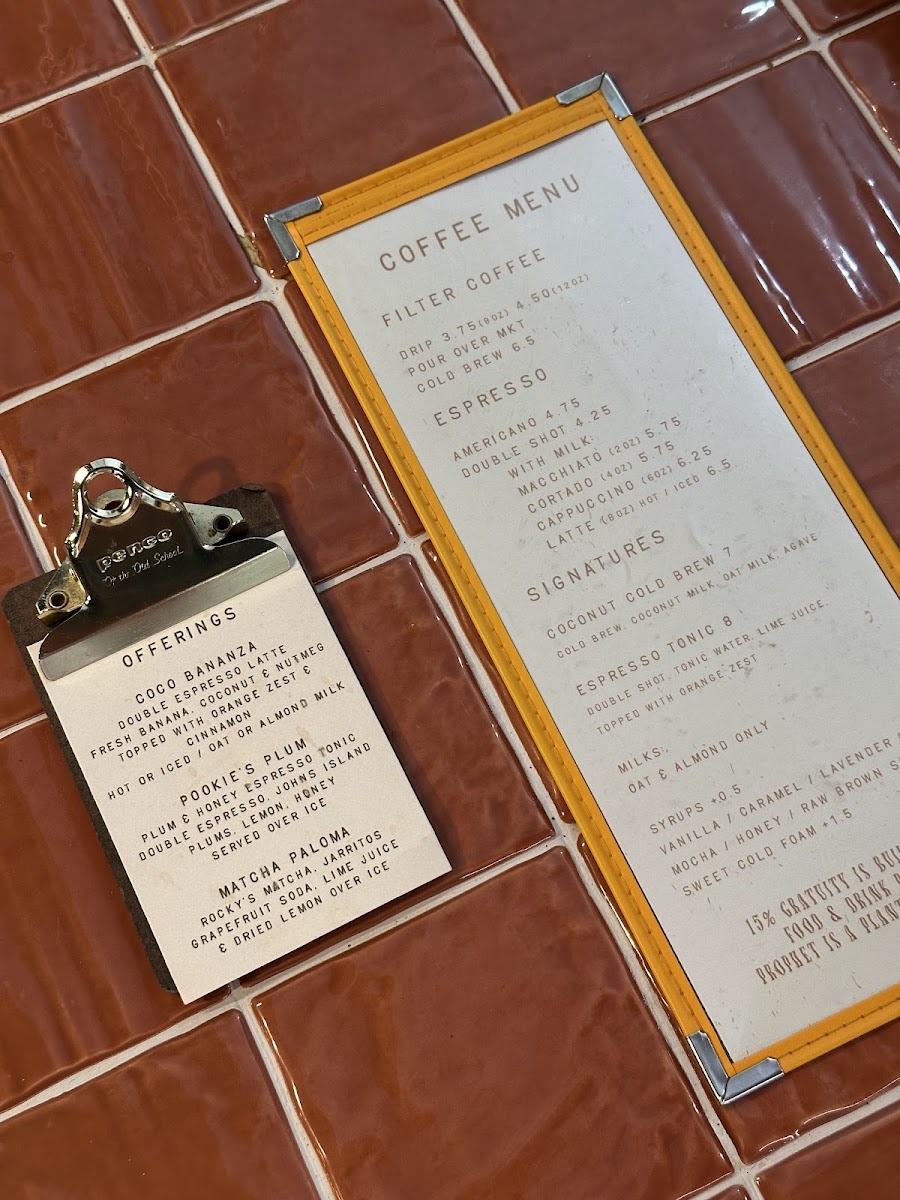 penco
Of the Old School
OFFERINGS
COCO BANANZA
DOUBLE ESPRESSO LATTE
FRESH BANANA, COCONUT & NUTMEG
TOPPED WITH ORANGE ZEST &
CINNAMON
HOT OR ICED / OAT OR ALMOND MILK
POOKIE'S PLUM
PLUM & HONEY ESPRESSO TONIC
DOUBLE ESPRESSO, JOHNS ISLAND
PLUMS, LEMON, HONEY
SERVED OVER ICE
MATCHA PALOMA
ROCKY'S MATCHA, JARRITOS
GRAPEFRUIT SODA, LIME JUICE
& DRIED LEMON OVER ICE
COFFEE MENU
FILTER COFFEE
DRIP 3.75(8OZ) 4.50(12OZ)
POUR OVER MKT
COLD BREW 6.5
ESPRESSO
AMERICANO 4.75
DOUBLE SHOT 4.25
WITH MILK:
MACCHIATO (2OZ) 5.75
CORTADO (4OZ) 5.75
CAPPUCCINO (6OZ) 6.25
LATTE (8OZ) HOT / ICED 6.5
SIGNATURES
COCONUT COLD BREW 7
COLD BREW, COCONUT MILK, OAT MILK, AGAVE
ESPRESSO TONIC 8
DOUBLE SHOT, TONIC WATER, LIME JUICE,
TOPPED WITH ORANGE ZEST
MILKS:
OAT & ALMOND ONLY
SYRUPS +0.5
VANILLA / CARAMEL / LAVENDER
MOCHA / HONEY / RAW BROWN
SWEET COLD FOAM +1.5
15% GRATUITY IS
FOOD & DRINK
PROPHET IS A